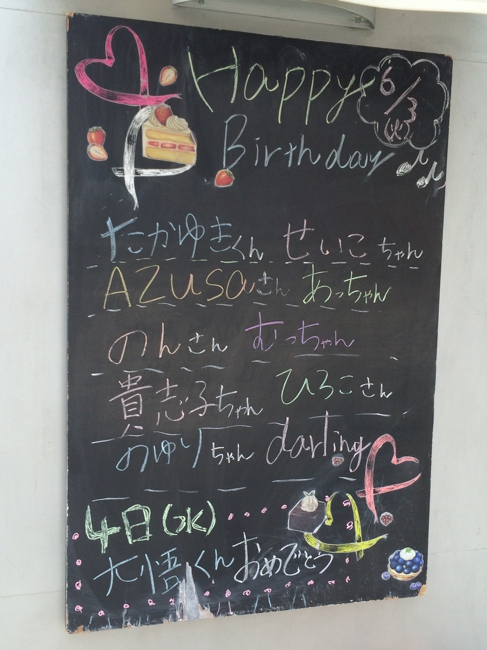 Happy 6/3
Birthday (火)
たかゆきくん せいこちゃん
AZUSAさん あっちゃん
のんさん むっちゃん
貴志子ちゃん ひろこさん
のゆりちゃん darling
4日(水)
大悟くんおめでとう